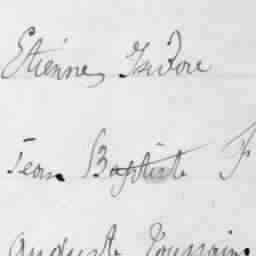 Etienne Isidore
Jean Baptiste F
Auguste Toussain